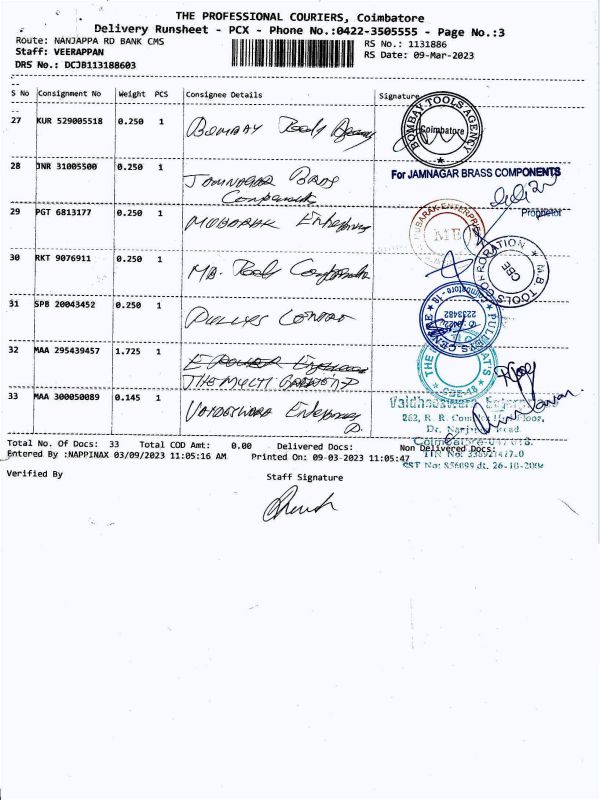 THE PROFESSIONAL COURIERS, Coimbatore
Delivery Runsheet - PCX - Phone No.:0422-3505555 - Page No.:3
Route: NANJAPPA RD BANK CMS
RS No.: 1131886
Staff: VEERAPPAN
RS Date: 09-Mar-2023
DRS No.: DCJB113188603
S No Consignment No Weight PCS Consignee Details Signature
27 KUR 529005518 0.250 1 BOMBAY Tools Agency
BOMBAY TOOLS AGENCY
Coimbatore
28 JNR 31005500 0.250 1 Jamnagar Brass
Components
For JAMNAGAR BRASS COMPONENTS
Proprietor
29 PGT 6813177 0.250 1 MUBARAK Enterprises
MUBARAK ENTERPRISES
ME
30 RKT 9076911 0.250 1 MB. Tools Corporation
M.B. TOOLS CORPORATION
CBE
31 SPB 20043452 0.250 1 Pulleys Centre
PULLEYS CENTRE
Coimbatore - 18
2233482
32 MAA 295439457 1.725 1
THE MULTI
THE
CBE-18
33 MAA 300050089 0.145 1 Enterprises
Vaidheeswara Enterprises
263, R. R. Complex Floor,
Dr. Nanjappa Road
Coimbatore-641 018.
CST No: 856099 dt. 26-10-200
Total No. Of Docs: 33 Total COD Amt: 0.00 Delivered Docs: Non Delivered Docs:
Entered By :NAPPINAX 03/09/2023 11:05:16 AM Printed On: 09-03-2023 11:05:47
Verified By Staff Signature